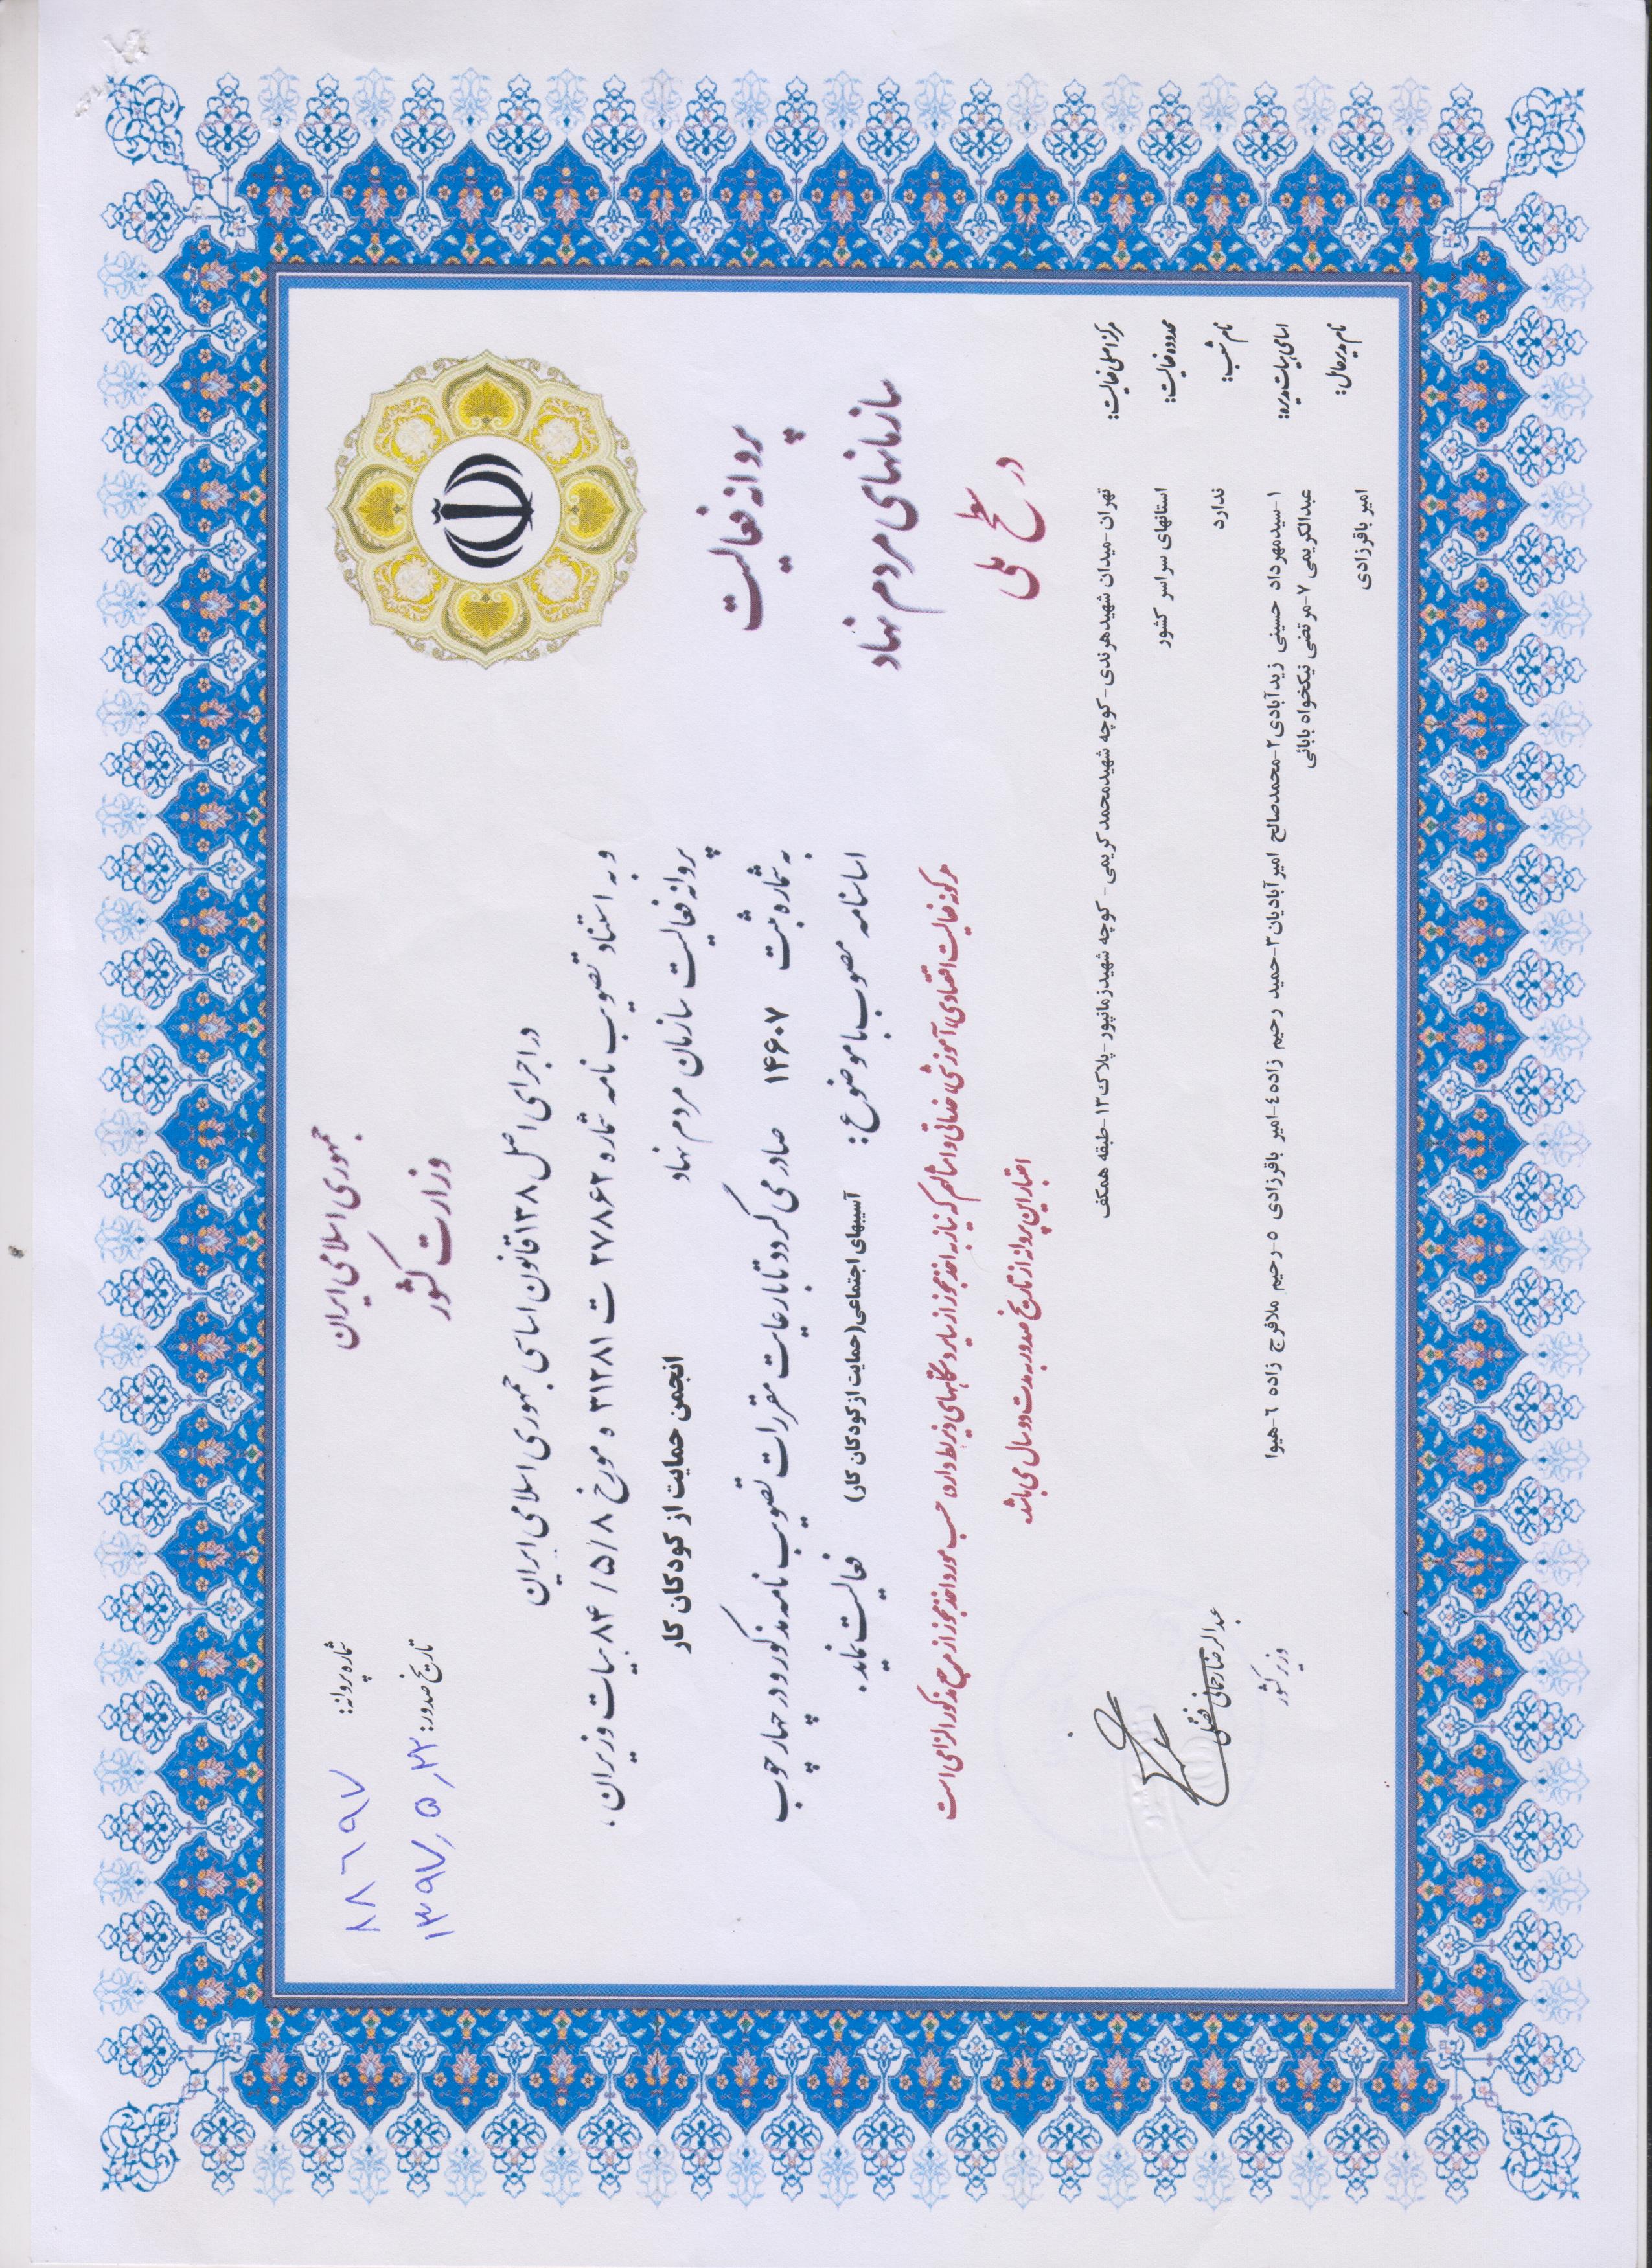 جمهوری اسلامی ایران
وزارت کشور
شماره پروانه: ۸۸۶۹۷
تاریخ صدور: ۱۳۹۷٫۵٫۲۲
پروانه فعالیت
سازمانهای مردم نهاد
در سطح ملی
در اجرای اصل ۱۳۸ قانون اساسی جمهوری اسلامی ایران
و به استناد تصویب نامه شماره ۲۷۸۶۲ ت ۳۱۲۸۱ ه مورخ ۸۴/۵/۸ هیات وزیران،
پروانه فعالیت سازمان مردم نهاد انجمن حمایت از کودکان کار
به شماره ثبت ۱۴۶۰۷ صادر می گردد تا با رعایت مقررات تصویب نامه مذکور و در چهارچوب
اساسنامه مصوب با موضوع: آسیبهای اجتماعی(حمایت از کودکان کار) فعالیت نماید.
هرگونه فعالیت اقتصادی، آموزشی، خدماتی و امثالهم که نیاز به اخذ مجوز از سایر دستگاههای ذیربط دارد، حسب مورد اخذ مجوز از مرجع مذکور الزامی است
اعتبار این پروانه از تاریخ صدور به مدت دو سال می باشد.
مرکز اصلی فعالیت: تهران-میدان شهیدهرندی-کوچه شهیدمحمدکریمی-کوچه شهیدزمانپور-پلاک۱۳-طبقه همکف
محدوده فعالیت: استانهای سراسر کشور
نام شعب: ندارد
اسامی هیات مدیره: ۱-سیدمهرداد حسینی زیدآبادی ۲-محمدصالح امیرآبادیان ۳-حمید رحیم زاده ۴-امیر باقرزادی ۵-رحیم ملافرج زاده ۶-هیوا
عبدالکریمی ۷-مرتضی نیکخواه بابائی
نام مدیرعامل: امیر باقرزادی
عبدالرضا رحمانی فضلی
وزیر کشور